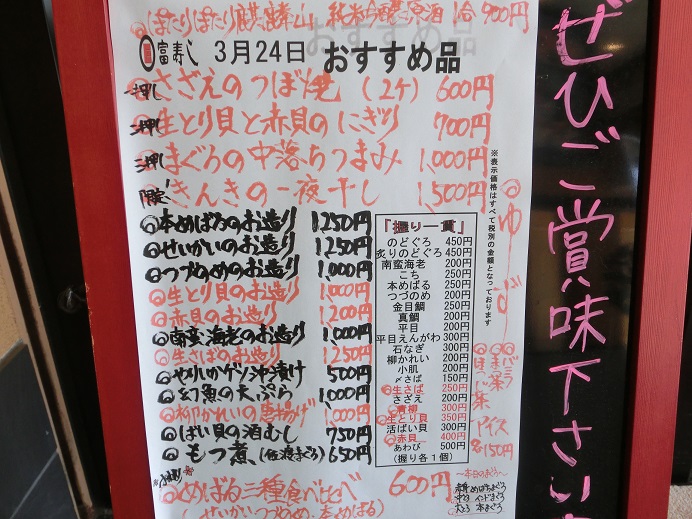 ぽたりぽたり麒麟山 純米吟醸原酒 1合 900円
富寿し 3月24日 おすすめ品
一押し さざえのつぼ焼 (2ケ) 600円
二押し 生とり貝と赤貝のにぎり 700円
三押し まぐろの中落ちつまみ 1,000円
限定 きんきの一夜干し 1,500円
◎本めばるのお造り 1,250円
◎せいかいのお造り 1,250円
◎つづのめのお造り 1,000円
◎生とり貝のお造り 1,000円
◎赤貝のお造り 1,200円
◎南蛮海老のお造り 1,000円
◎生さばのお造り 1,250円
◎やりいかゲソ沖漬け 500円
◎幻魚の天ぷら 1,000円
◎柳かれいの唐揚げ 1,000円
◎ばい貝の酒むし 750円
◎もつ煮 (佐渡まぐろ) 650円
◎めばる三種食べ比べ 600円
(せいかい、つづのめ、本めばる)
「握り一貫」
のどぐろ 450円
炙りのどぐろ 450円
南蛮海老 200円
こち 250円
本めばる 250円
つづのめ 200円
金目鯛 250円
真鯛 200円
平目 200円
平目えんがわ 300円
石なぎ 300円
柳かれい 200円
小肌 200円
〆さば 150円
◎生さば 250円
さざえ 200円
◎青柳 300円
◎生とり貝 350円
活ばい貝 300円
◎赤貝 400円
あわび 500円
(握り各1個)
※表示価格はすべて税別の金額となっております
アイス
各150円
〜本日のまぐろ〜
中とろ インドまぐろ
大とろ 本まぐろ
ぜひご賞味下さい